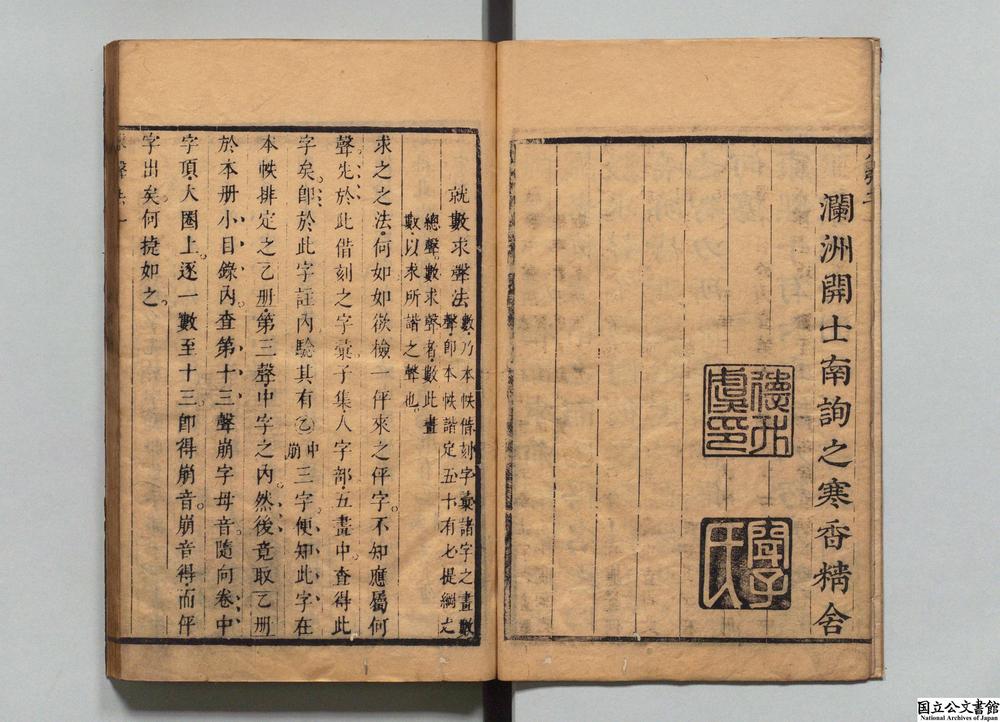 瀾洲開士南詢之寒香精舍
就數求聲法
數乃本帙借刻字彙諸字之畫數
聲卽本帙諧定五十有七提綱之
總聲數求聲者數此畫
數以求所諧之聲也
求之之法何如如欲檢一伻來之伻字不知應屬何
聲先於此借刻之字彙子集人字部五畫中查得此
字矣卽於此字註內驗其有乙中崩三字便知此字在
本帙排定之乙册第三聲中字之內然後竟取乙册
於本册小目錄內查第十三聲崩字母音隨向卷中
字項大圈上逐一數至十三卽得崩音崩音得而伻
字出矣何捷如之
国立公文書館
National Archives of Japan